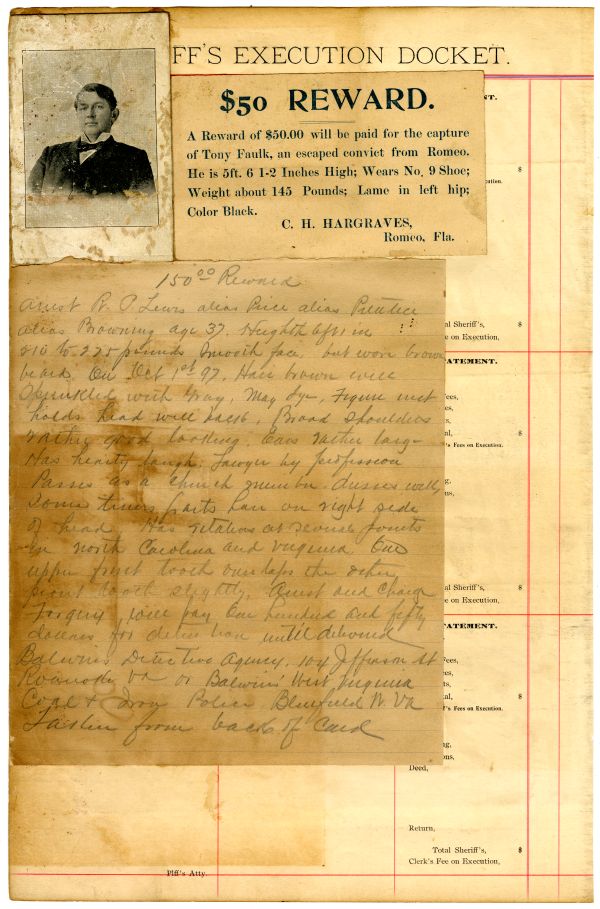 FF'S EXECUTION DOCKET.
$50 REWARD.
A Reward of $50.00 will be paid for the capture
of Tony Faulk, an escaped convict from Romeo.
He is 5ft. 6 1-2 Inches High; Wears No. 9 Shoe;
Weight about 145 Pounds; Lame in left hip;
Color Black.
C. H. HARGRAVES,
Romeo, Fla.
150⁰⁰ Reward
Arrest R. P. Lewis alias Price alias Prentice
alias Browning age 37. Heighth 6 ft 1 in
210 to 225 pounds Smooth face, but worn brown
beard On Oct 1st 97, Hair brown well
Sprinkled with Gray, May dye, Figure
holds head well back, Broad Shoulders
rather good looking, Ears rather large
Has hearty laugh. Lawyer by profession
Passes as a Church member. dresses well
Some times parts hair on right side
of head Has relations at several points
in North Carolina and Virginia One
upper front tooth overlaps the other
front tooth slightly. Arrest and Charge
Forgery, will pay One hundred and fifty
dollars for detention until delivered
Balwins Detective Agency, 104 Jefferson St
Roanoke Va or Balwins' West Virginia
Coal & Iron Police Bluefield W. Va
Taken from back of Card
NT.
$
cution.
al Sheriff's, $
e on Execution,
ATEMENT.
Fees,
es,
s,
al, $
f's Fees on Execution.
ng,
ns,
al Sheriff's, $
e on Execution,
ATEMENT.
Fees,
es,
ts,
al, $
f's Fees on Execution.
ng,
ons,
Deed,
Return,
Total Sheriff's, $
Clerk's Fee on Execution,
Plff's Atty.